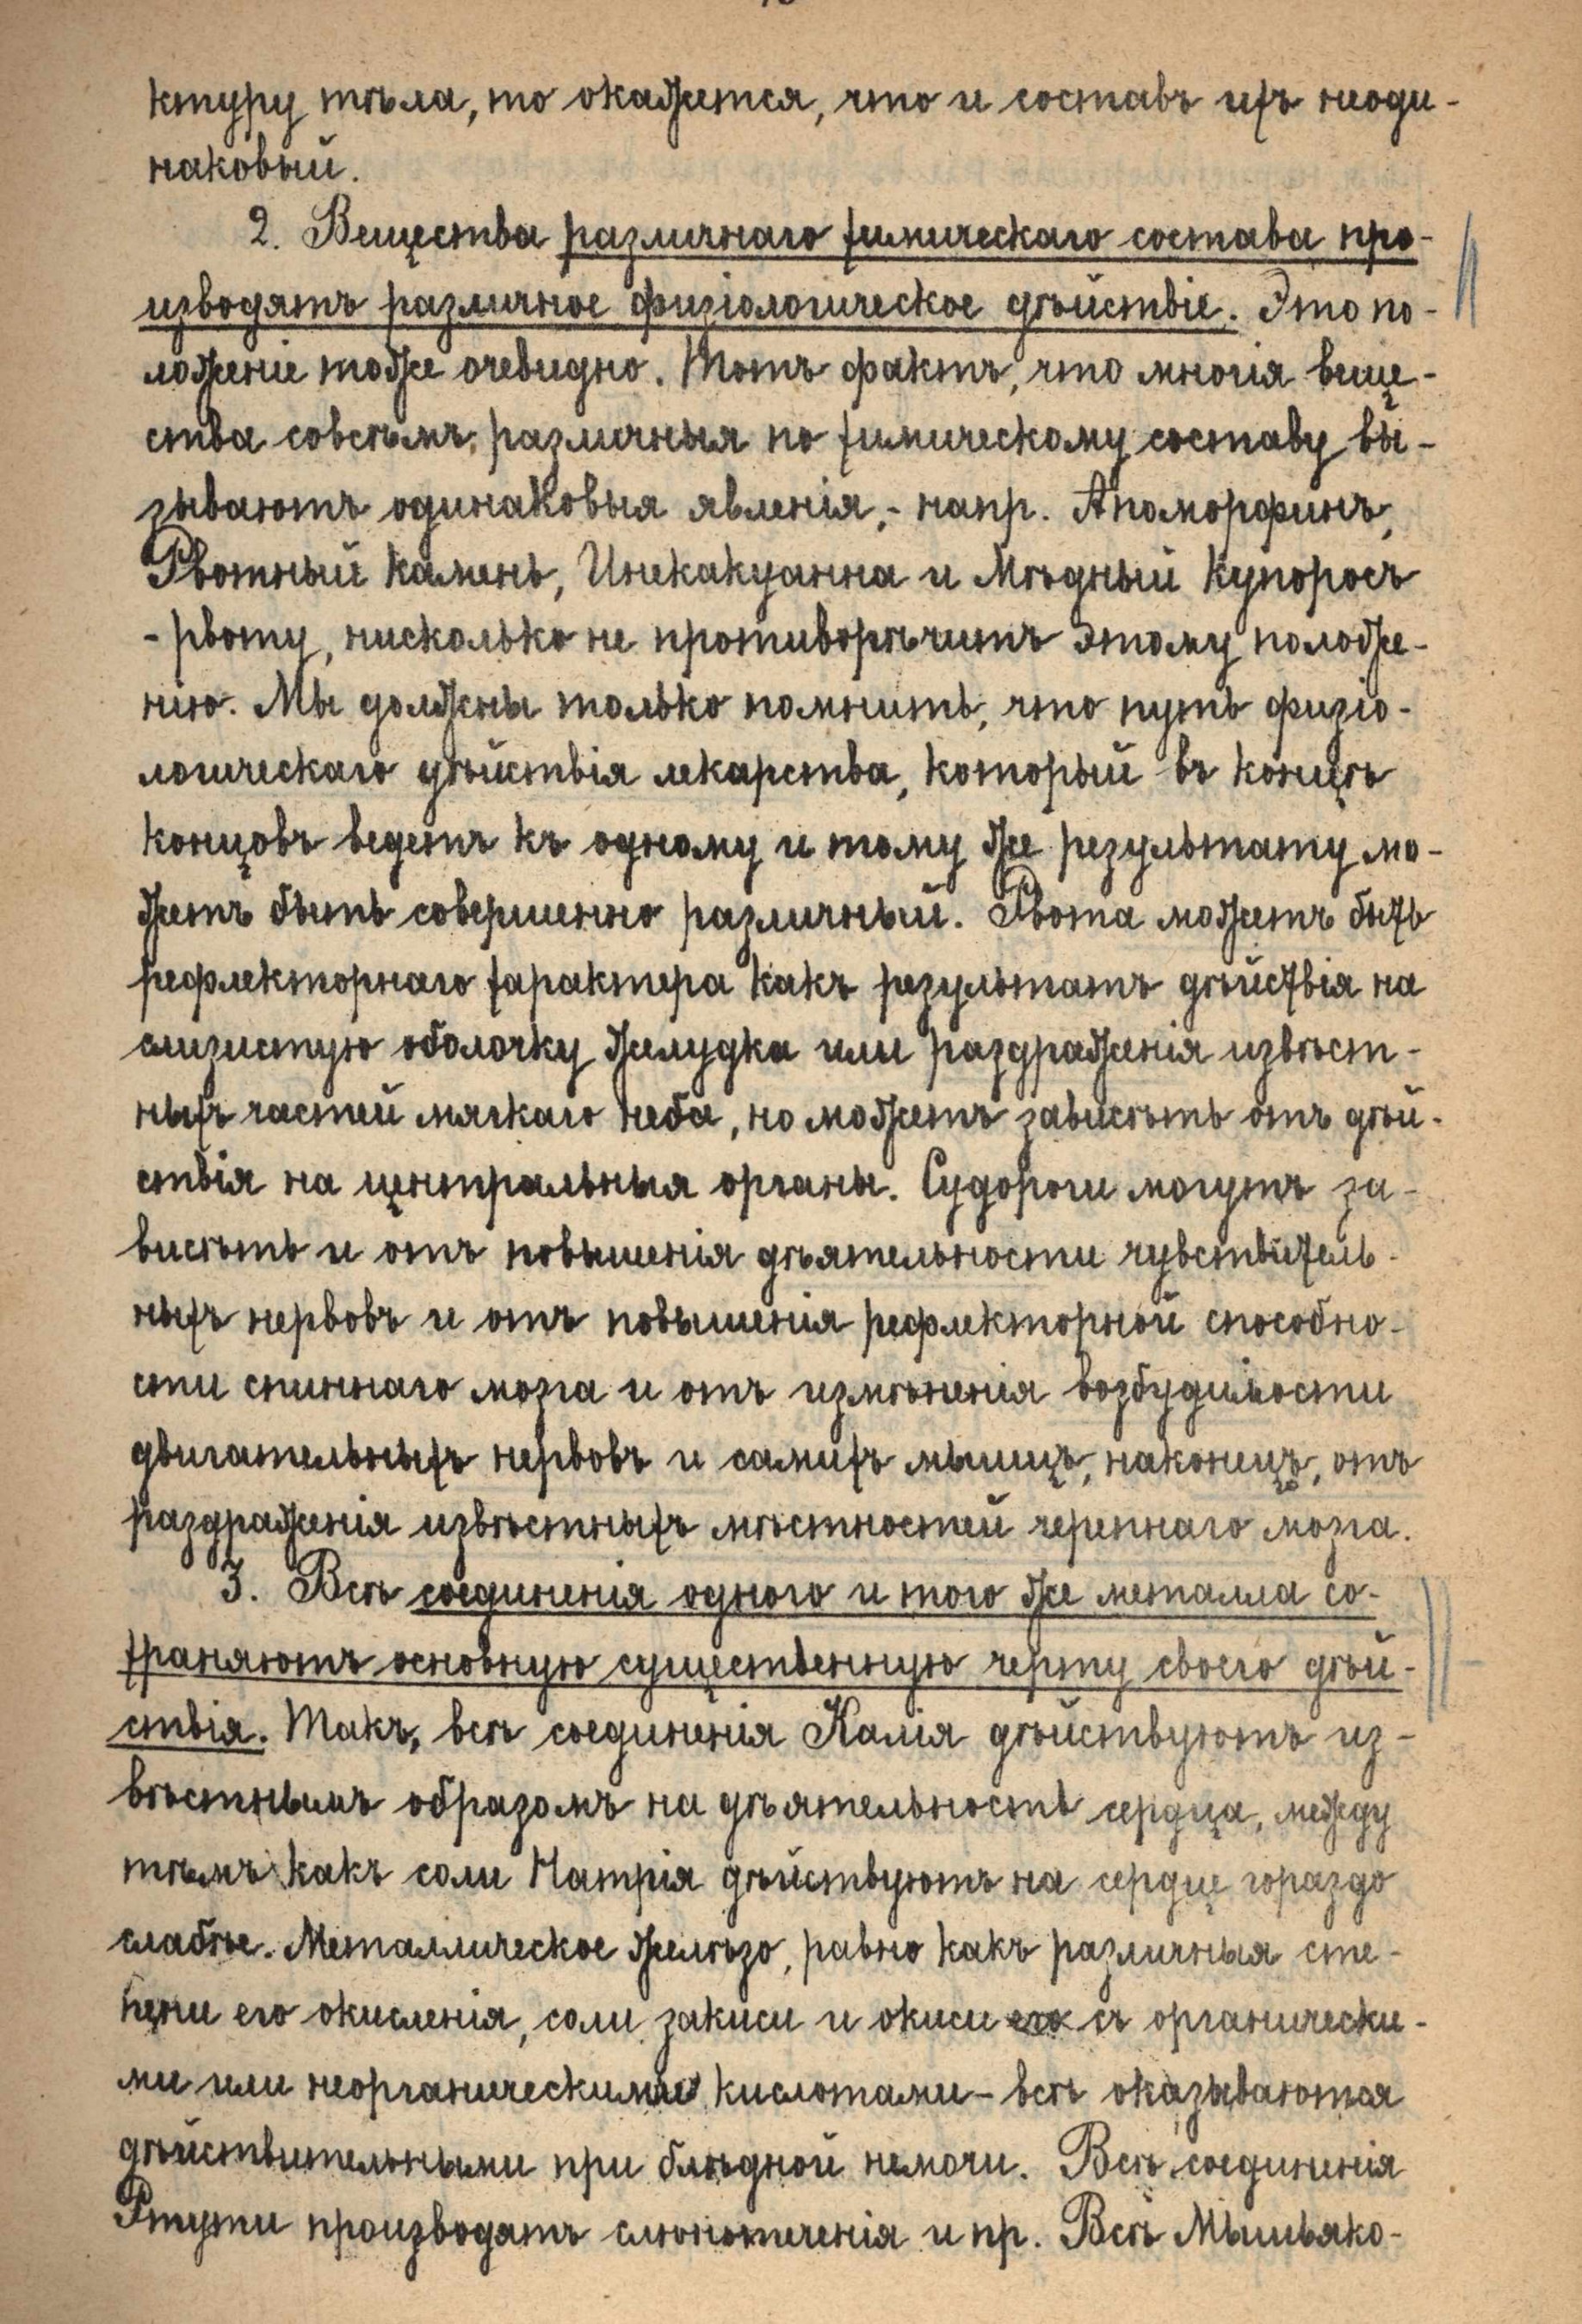 ктуру тѣла, то окажется, что и составъ ихъ неоди-
наковый.
2. Вещества различнаго химическаго состава про-
изводятъ различное физіологическое дѣйствіе. Это по-
ложеніе тоже очевидно. Тотъ фактъ, что многія веще-
ства совсѣмъ различныя по химическому составу вы-
зываютъ одинаковыя явленія,- напр. Апоморфинъ,
Рвотный камень, Ипекакуанна и Мѣдный купоросъ
- рвоту, нисколько не противорѣчитъ этому положе-
нію. Мы должны только помнить, что путь физіо-
логическаго дѣйствія лекарства, который въ концѣ
концовъ ведетъ къ одному и тому же результату мо-
жетъ быть совершенно различный. Рвота можетъ быть
рефлекторнаго характера какъ результатъ дѣйствія на
слизистую оболочку желудка или раздраженія извѣст-
ныхъ частей мягкаго неба, но можетъ зависѣть отъ дѣй-
ствія на центральныя органы. Судороги могутъ за-
висѣть и отъ повышенія дѣятельности чувствитель-
ныхъ нервовъ и отъ повышенія рефлекторной способно-
сти спиннаго мозга и отъ измѣненія возбудимости
двигательныхъ нервовъ и самихъ мышцъ, наконецъ, отъ
раздраженія извѣстныхъ мѣстностей черепнаго мозга.
3. Всѣ соединенія одного и того же металла со-
храняютъ основную существенную черту своего дѣй-
ствія. Такъ, всѣ соединенія Калія дѣйствуютъ из-
вѣстнымъ образомъ на дѣятельность сердца, между
тѣмъ какъ соли Натрія дѣйствуютъ на сердце гораздо
слабѣе. Металлическое желѣзо, равно какъ различныя сте-
пени его окисленія, соли закиси и окиси его съ органически-
ми или неорганическими кислотами - всѣ оказываются
дѣйствительными при блѣдной немочи. Всѣ соединенія
Ртути производятъ слюнотеченія и пр. Всѣ Мышьяко-